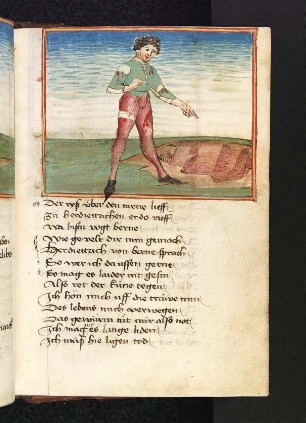 Der rysz über den turne lieff
Zu herdietrichen er do rieff
Wa bistu vogt berne
Wie gevelt dir min gemach
Herdietrich von berne sprach
So wer ich da ussen gerne
So mag es laider nit gesin
Also ret der küne tegen
Ich hon mich uff die trüwe din
Des lebens mich verwegen
Das gewürm tüt mir also not
Ich mag es lange liden
Ich müsz hie ligen tod